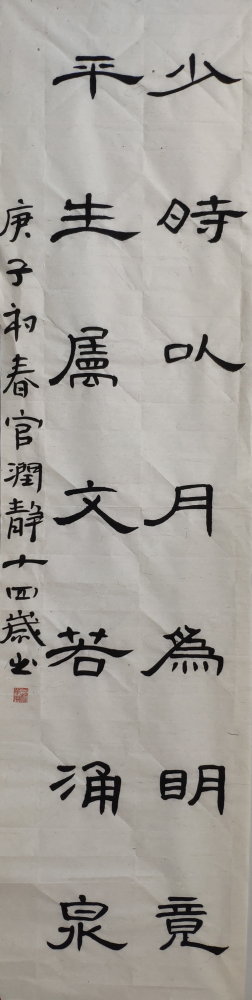 少時以月為明竟
平生属文若涌泉
庚子初春官潤静十四歲书